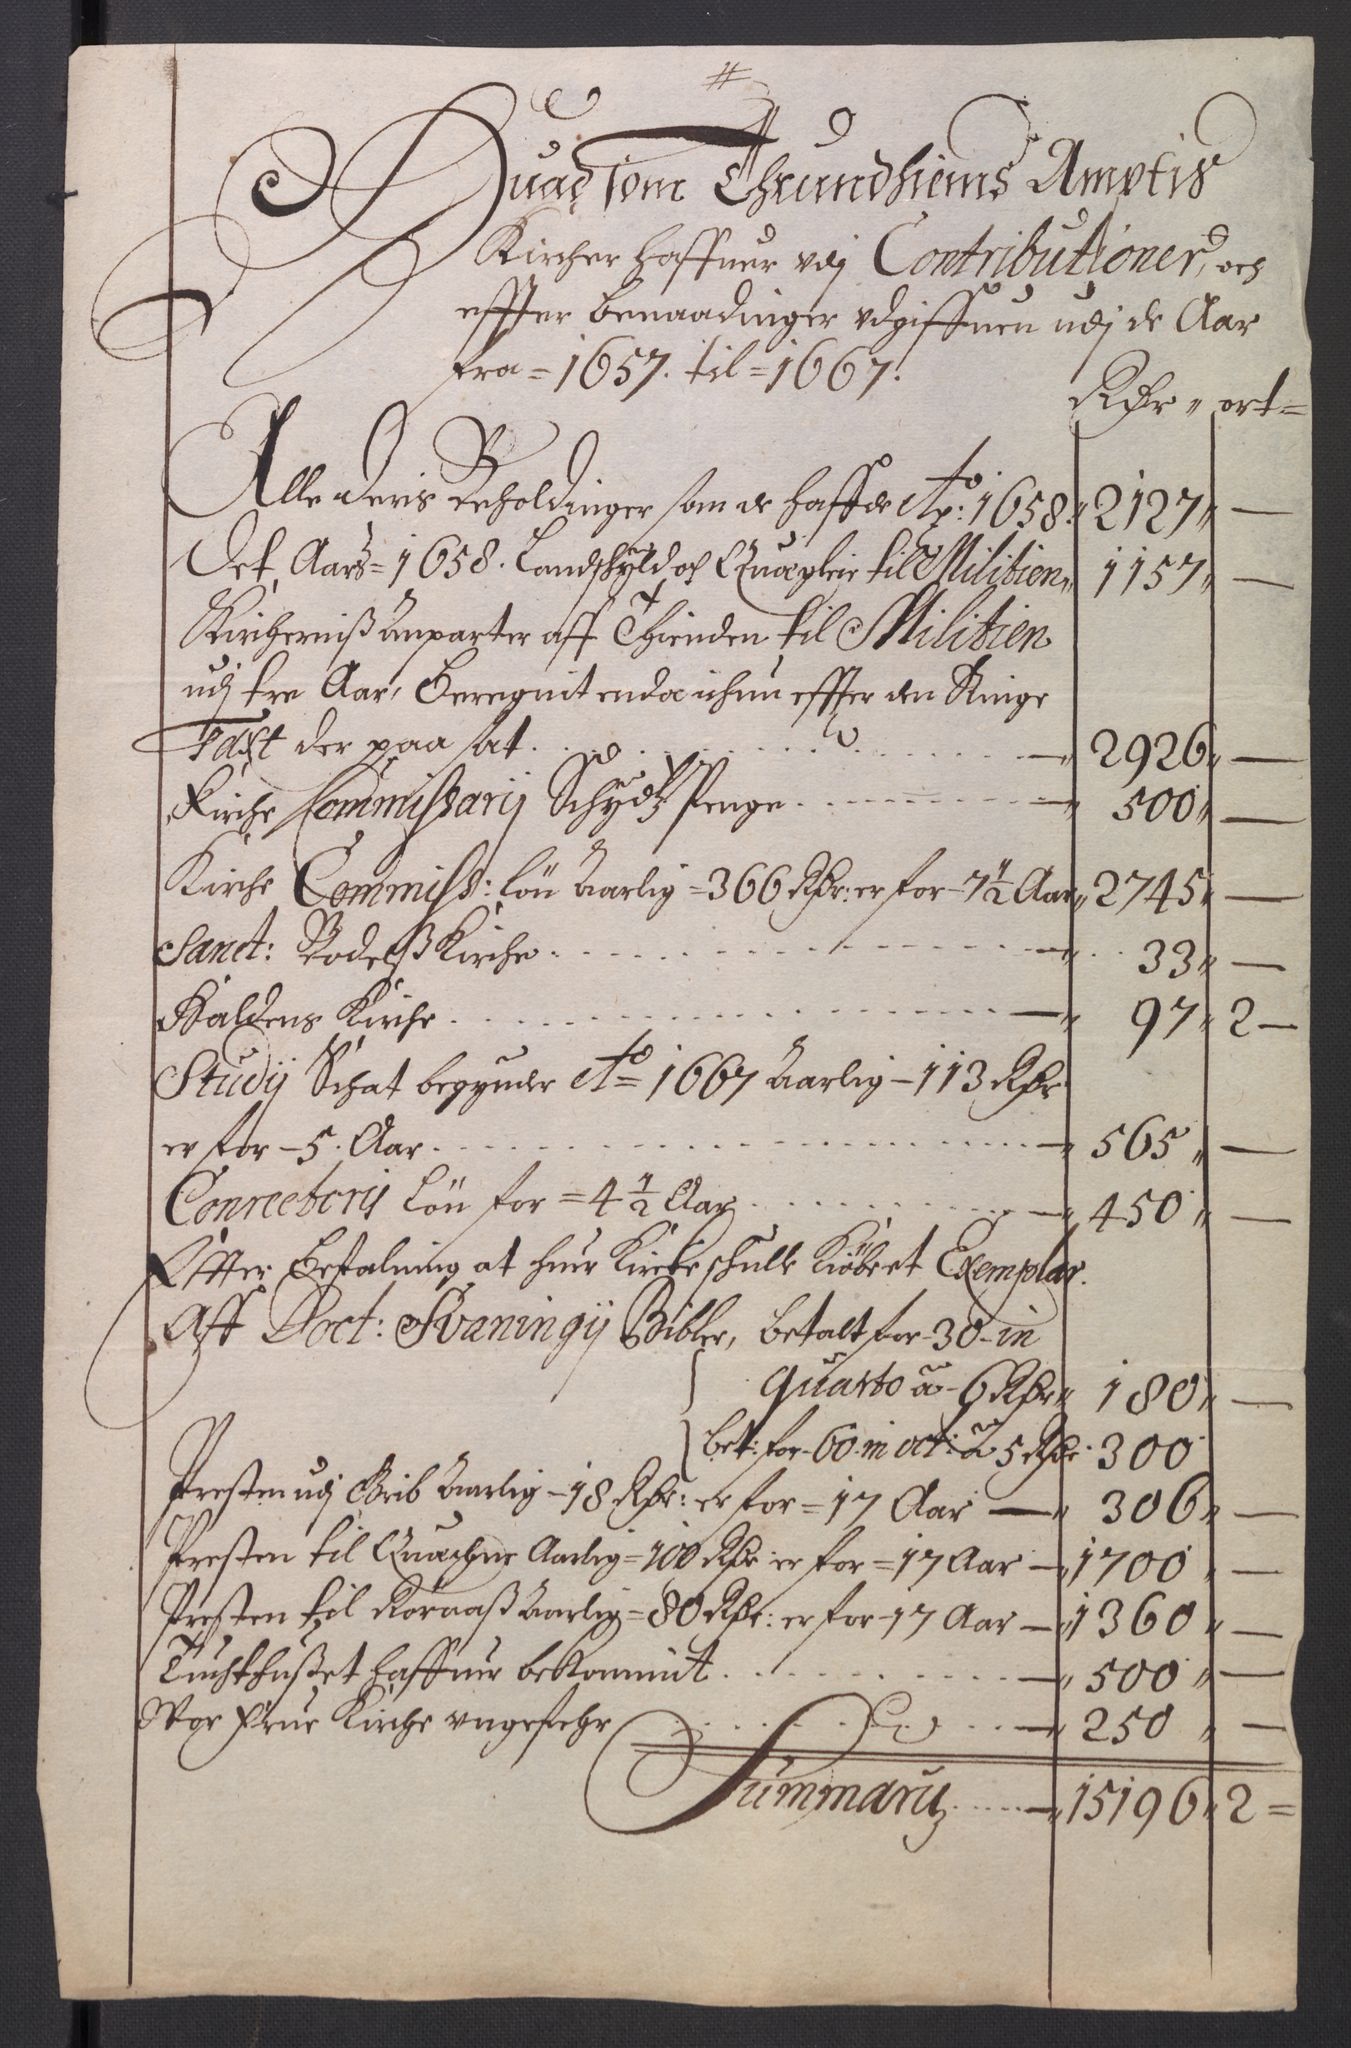 Huad som Thrundhiems Amptis
Kircher haffuer udj Contributioner, och
effter benaadinger udgiffuen udj de Aar
fra = 1657. til = 1667.
Rdr „ ort =
Alle deris beholdinger som de haffde Ao: 1658 „ 2127 „ —
Det Aars = 1658. Landschyld och Quægleie til Militien „ 1157 „ —
Kircherniß Anparter aff Thienden til Militien
udj tre Aar, beregnit enda ichun effter den Ringe
Taxt der paa sat . . . — „ 2926 „ —
Kirche Commissarij Schydtz Penge . . . — „ 500 „ —
Kirche Commiss: løn Aarlig = 366 Rdr: er for – 7 1/2 Aar „ 2745 „ —
Sanct: Bodelß Kirche . . . — „ 33 „ —
Haldens Kirche . . . — „ 97 „ 2 —
Studij Schat begynder Ao = 1667 Aarlig – 113 Rdr
er for – 5. Aar . . . — „ 565 „ —
Conrectoris løn for = 4 1/2 Aar . . . — „ 450 „ —
Effter befalning at huer Kircke schulle kiøbe et Exemplar
Aff Doct: Svaningij Bibler, betalt for – 30 – in
quarto a – 6 Rdr „ 180 „ —
bet: for – 60 – in oct: a 5 Rdr 300
Presten udj Grib Aarlig – 18 Rdr: er for = 17 Aar — „ 306 „ —
Presten til Quachne Aarlig = 100 Rdr er for = 17 Aar — „ 1700 „ —
Presten til Röraaß Aarlig = 80 Rdr: er for – 17 Aar — „ 1360 „ —
Tuchthußet haffuer bekommit . . . — „ 500 „ —
Vor Frue Kirche ungefehr . . . — „ 250 „ —
Summarum . . . — „ 15196 „ 2 =